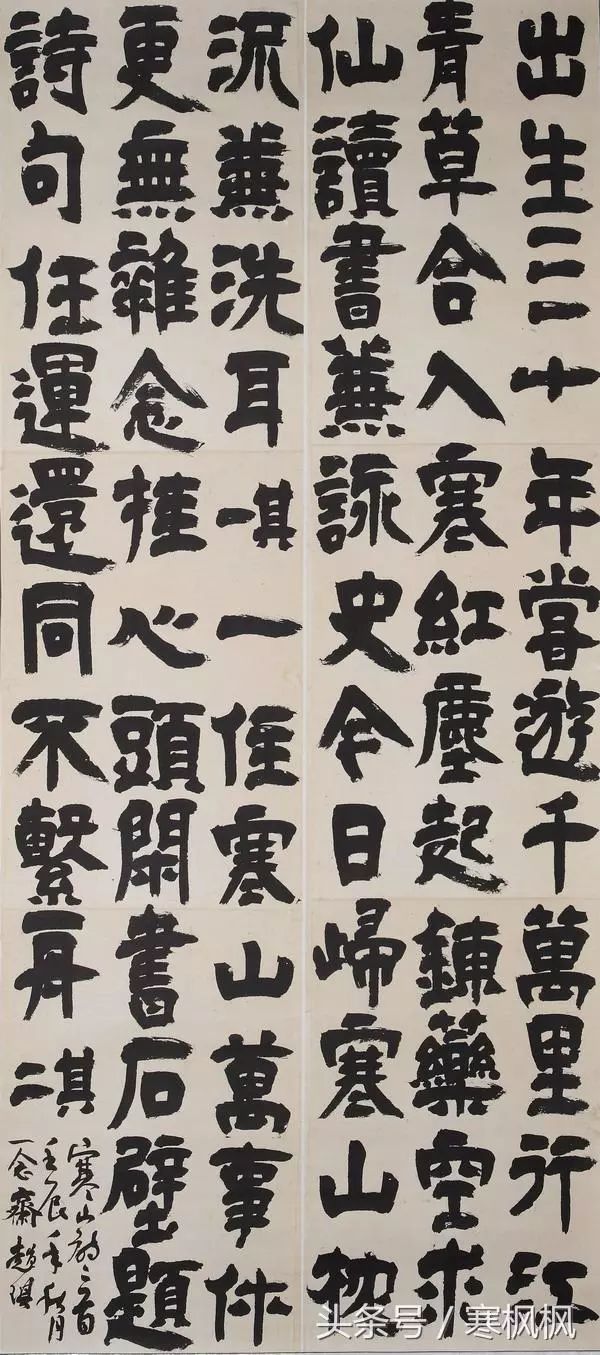 出生三十年嘗遊千萬里行江
青草合入塞紅塵起鍊藥空求
仙讀書兼詠史今日歸寒山枕
流兼洗耳其一一住寒山萬事休
更無雜念挂心頭閑書石壁題
詩句任運還同不繫舟其二
寒山詩二首
壬辰年秋月
一念齋趙
头条号 / 寒枫枫